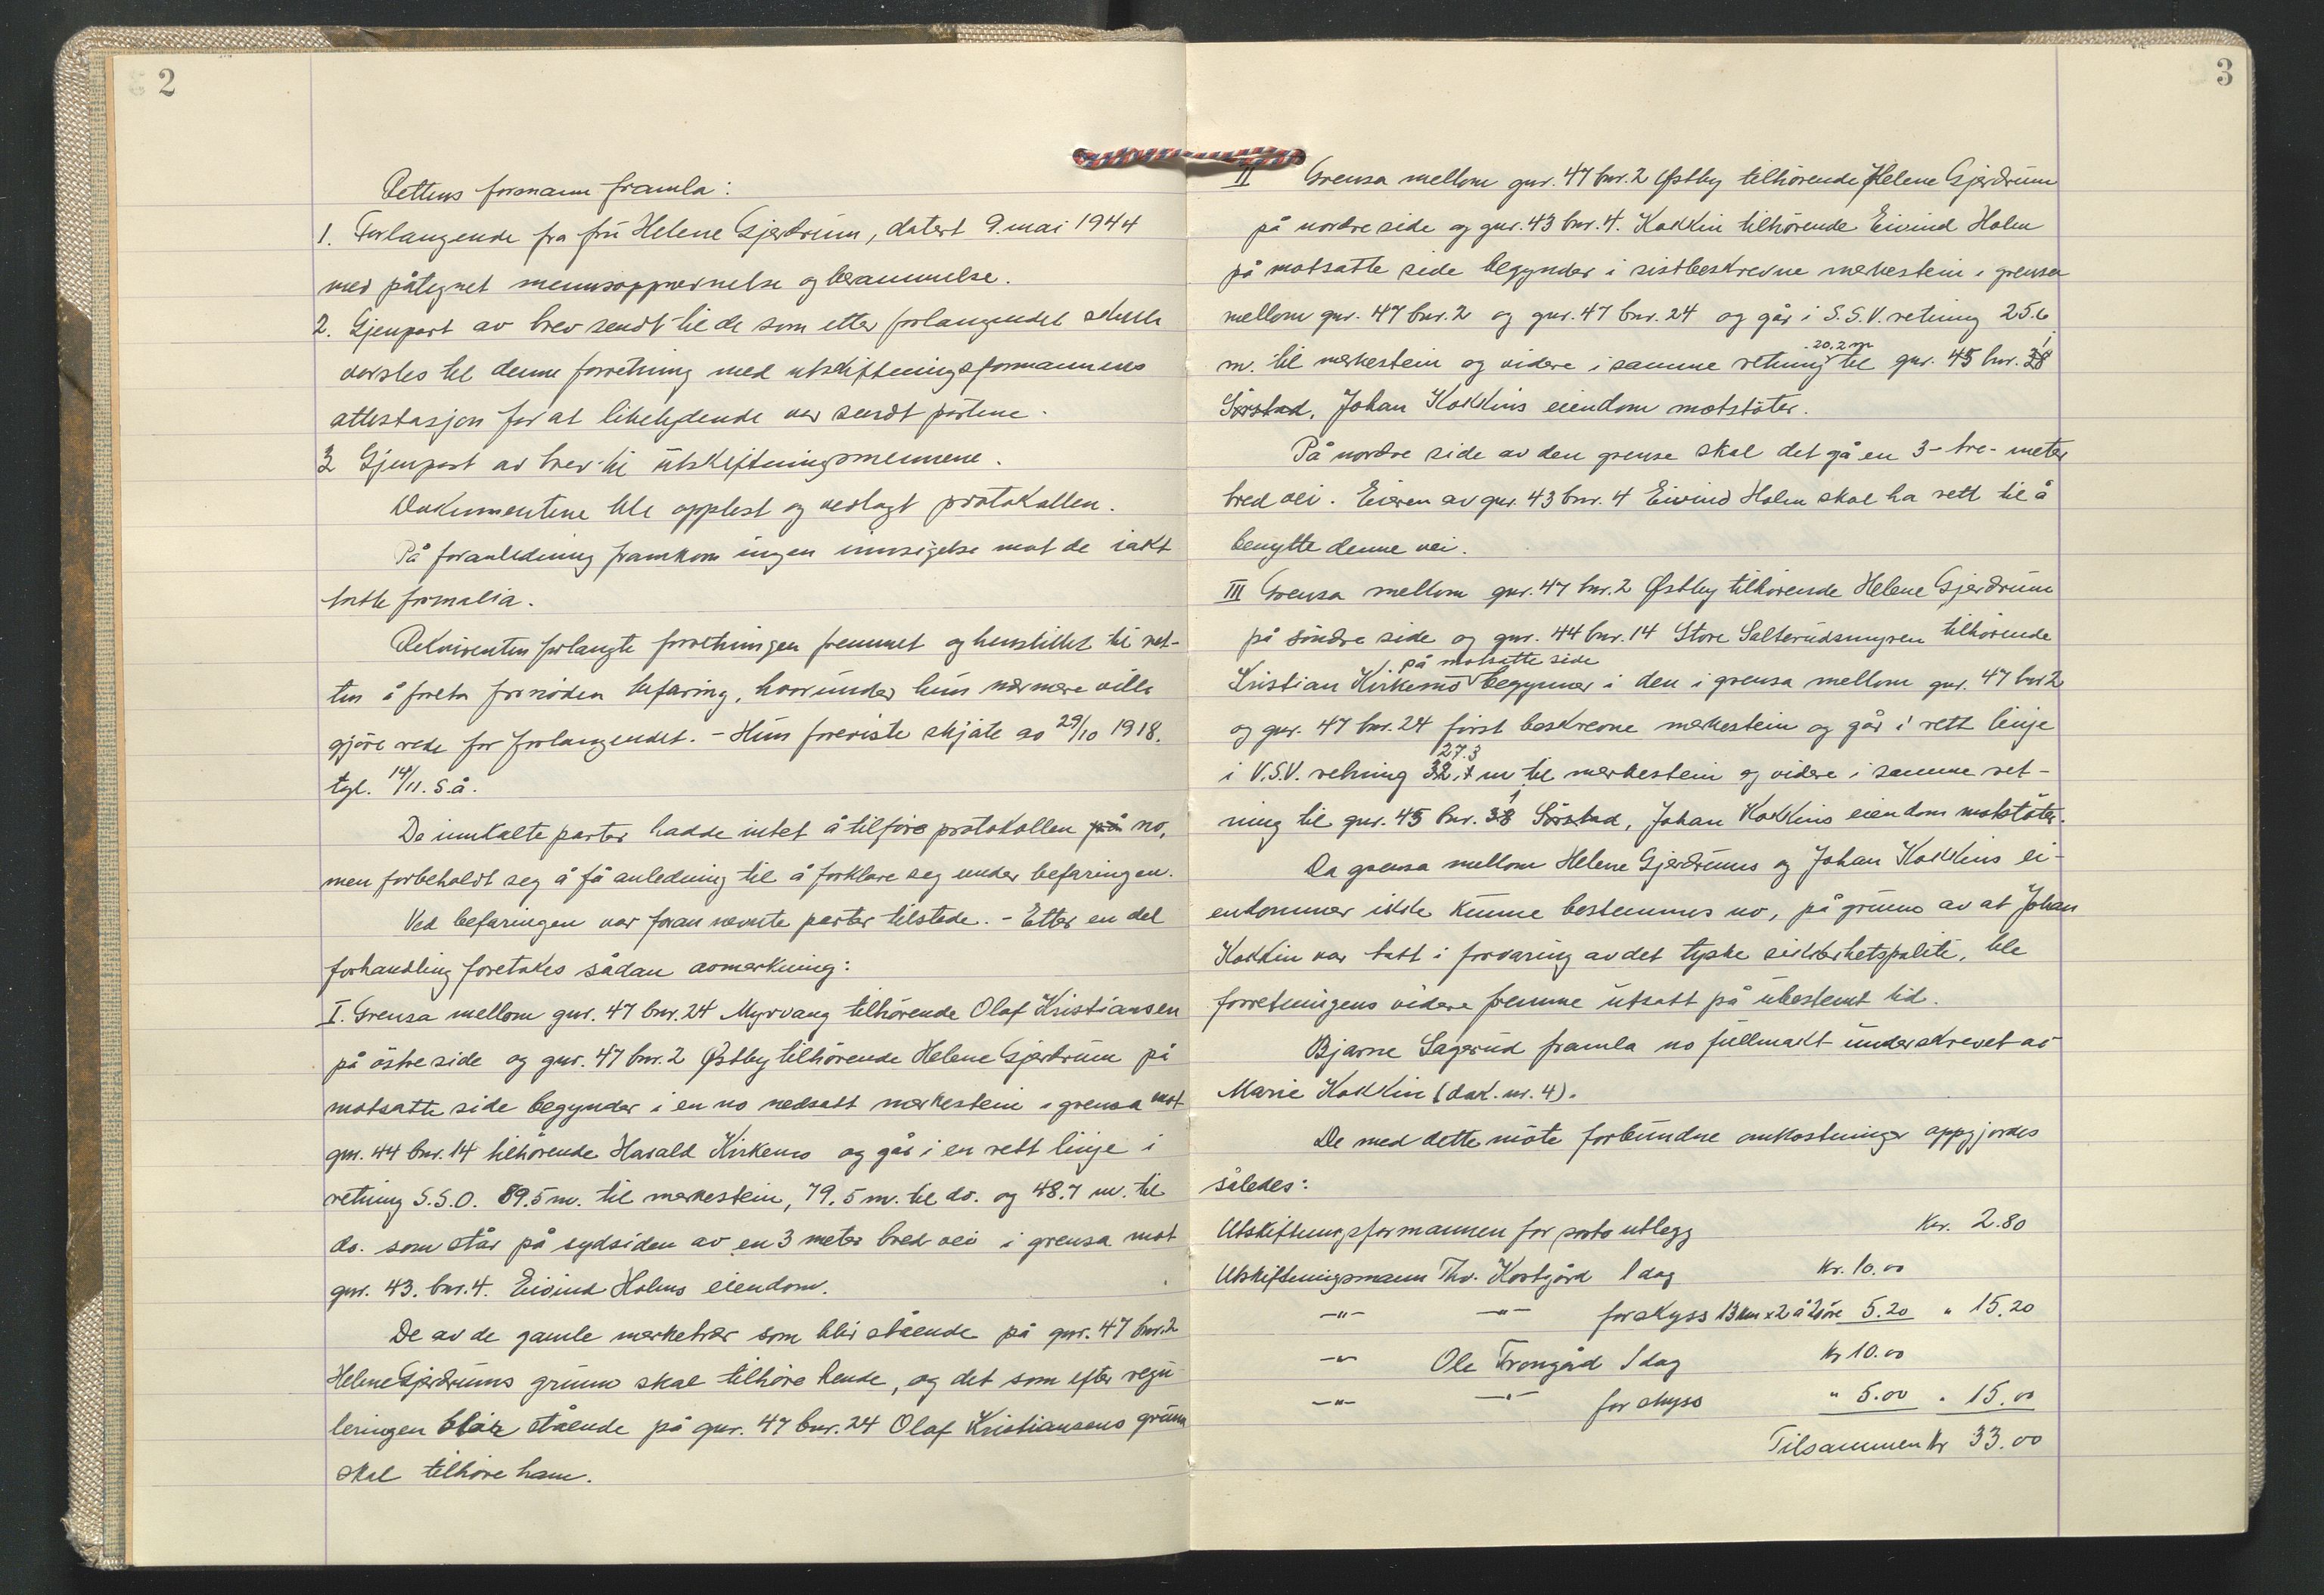 2
Rettens formann framla:
1. Forlangende fra fru Helene Gjerdrum, datert 9. mai 1944
med påtegnet mennsoppnevnelse og berammelse.
2. Gjenpart av brev sendt til de som etter forlangendet skulle
varsles til denne forretning med utskiftningsformannens
attestasjon for at likelydende var sendt partene.
3 Gjenpart av brev til utskiftningsmennene.
Dokumentene ble opplest og vedlagt protokollen.
På foranledning framkom ingen innsigelse mot de iakt
tatte formalia.
Rekvirenten forlangte forretningen fremmet og henstillet til ret-
ten å foreta fornöden befaring, hvorunder hun nærmere ville
gjöre rede for forlangendet. - Hun foreviste skjöte av 29/10 1918.
tgl. 14/11. s.å.
De innkalte parter hadde intet å tilföre protokollen på no,
men forbeholdt seg å få anledning til å forklare seg under befaringen.
Ved befaringen var foran nevnte parter tilstede. - Etter en del
forhandling foretokes sådan avmerkning:
I. Grensa mellom gnr. 47 bnr. 24 Myrvang tilhörende Olaf Kristiansen
på östre side og gnr. 47 bnr. 2 Østby tilhörende Helene Gjerdrum på
motsatte side begynder i en no nedsatt merkestein i grensa mot
gnr. 44 bnr. 14 tilhörende Harald Kirkemo og går i en rett linje i
retning S.S.O. 89.5 m. til merkestein, 79.5 m. til do. og 48.7 m. til
do. som står på sydsiden av en 3 meter bred vei i grensa mot
gnr. 43. bnr. 4. Eivind Holms eiendom.
De av de gamle merketrær som blir stående på gnr. 47 bnr. 2
Helene Gjerdrums grunn skal tilhöre hende, og det som efter regu-
leringen blir stående på gnr. 47 bnr. 24 Olaf Kristiansens grunn
skal tilhöre ham.
3
II Grensa mellom gnr. 47 bnr. 2 Østby tilhörende Helene Gjerdrum
på nordre side og gnr. 43 bnr. 4. Kokkin tilhörende Eivind Holm
på motsatte side begynder i sistbeskrevne merkestein i grensen
mellom gnr. 47 bnr. 2 og gnr. 47 bnr. 24 og går i S.S.V. retning 25.6
20.2 m 1
m. til merkestein og videre i samme retning til gnr. 45 bnr. 38
Sørstad, Johan Kokkins eiendom motstöter.
På nordre side av den grense skal det gå en 3- tre- meter
bred vei. Eieren av gnr. 43 bnr. 4 Eivind Holm skal ha rett til å
benytte denne vei.
III Grensa mellom gnr. 47 bnr. 2 Østby tilhörende Helene Gjerdrum
på söndre side og gnr. 44 bnr. 14 Store Salterudsmyren tilhörende
på motsatte side
Kristian Kirkemo begynner i den i grensa mellom gnr. 47 bnr 2
og gnr. 47 bnr. 24 först beskrevne merkestein og går i rett linje
27.3
i V.S.V. retning 32, m til merkestein og videre i samme ret-
1
ning til gnr. 45 bnr. 38 Sörstad, Johan Kokkins eiendom motstöter.
Da grensa mellom Helene Gjerdrums og Johan Kokkins ei-
endommer ikke kunne bestemmes no, på grunn av at Johan
Kokkin var tatt i forvaring av det tyske sikkerhetspoliti, ble
forretningens videre fremme utsatt på ubestemt tid.
Bjarne Lagerud framla no fullmakt underskrevet av
Marie Kokkin (dok. nr. 4).
De med dette möte forbundne omkostninger oppgjordes
således:
Utskiftningsformannen for porto utlegg kr. 2.80
Utskiftningsmann Thv. Kostgård 1 dag kr. 10.00
-"- -"- for skyss 13 km x 2 à 20 öre 5.20 " 15.20
-"- Ole Frongård 1 dag kr 10.00
-"- -"- for skyss " 5.00 " 15.00
Tilsammen kr 33.00